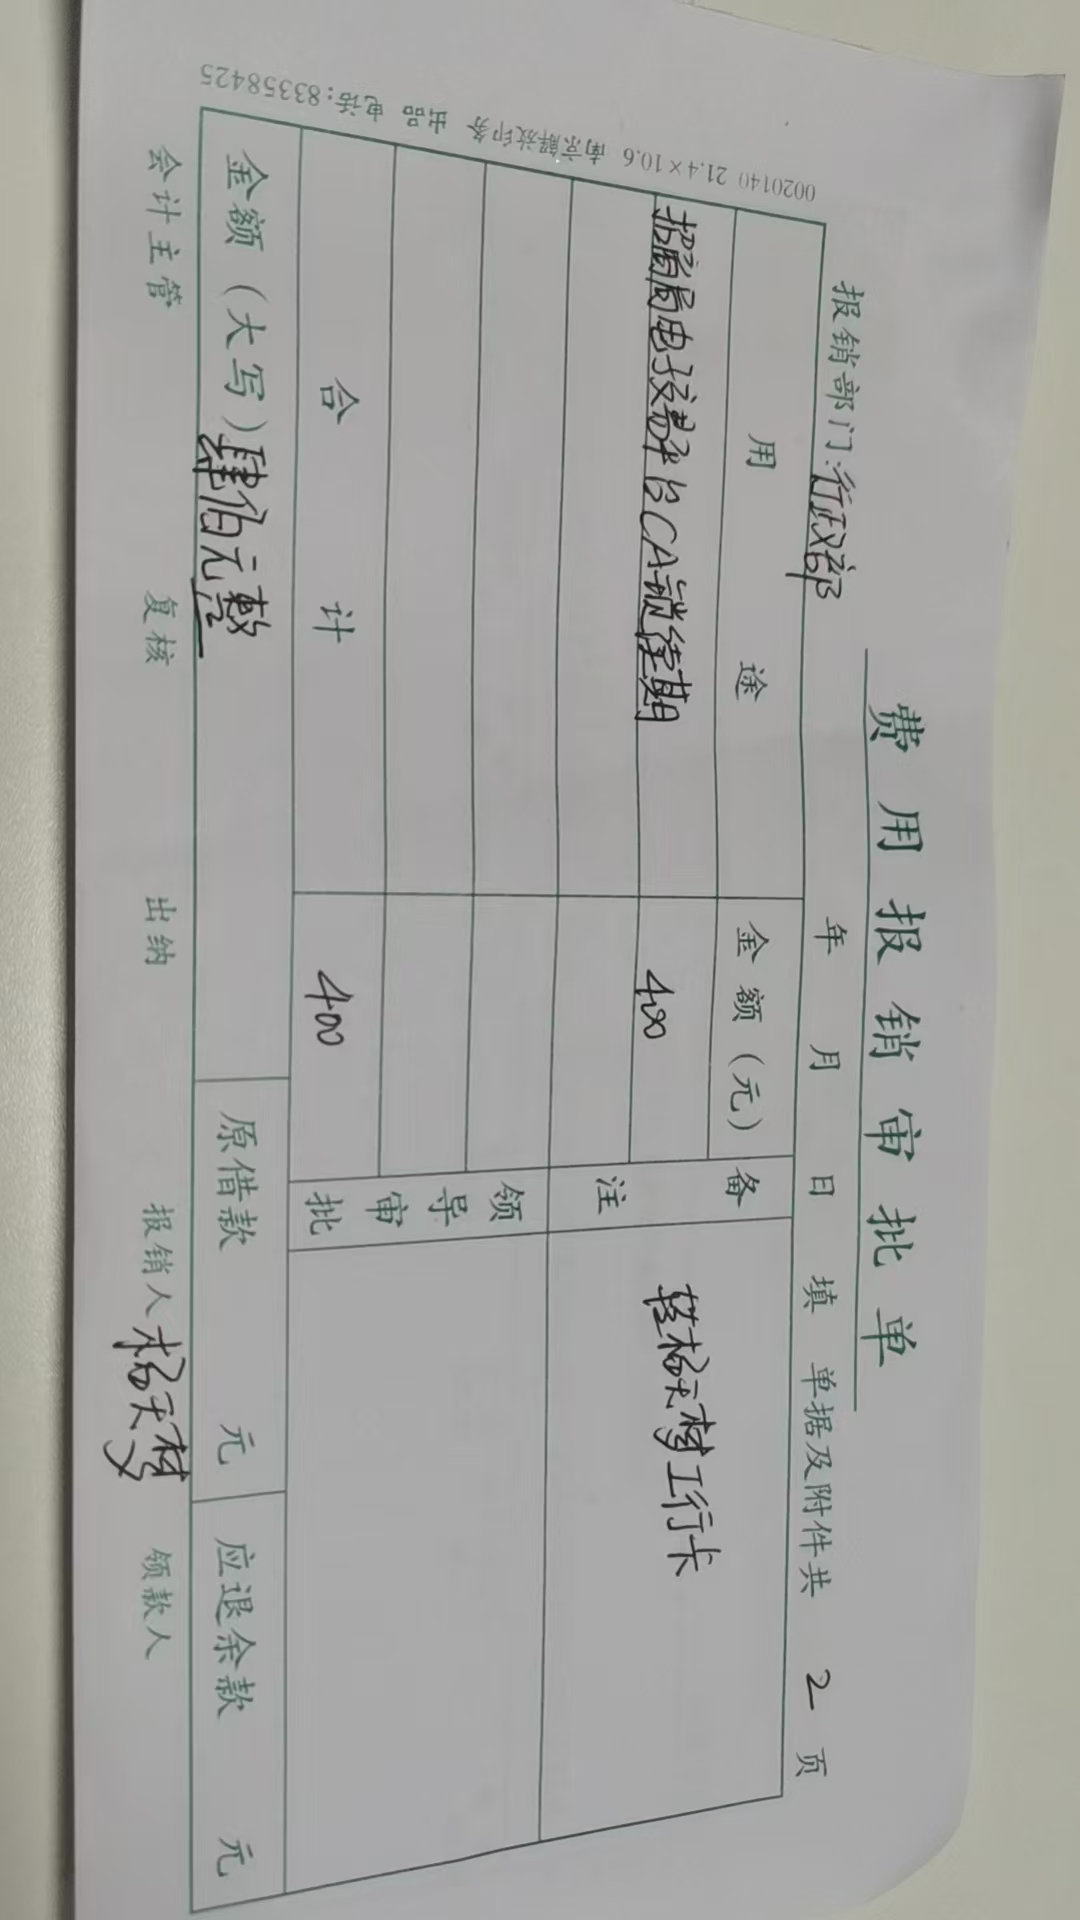 费用报销审批单
报销部门:行政部 年 月 日 填 单据及附件共 2 页
用途 金额(元) 备注
电子交易平台CA锁延期 400 转杨天梦工行卡
领导审批
合计 400
金额(大写)肆佰元整 原借款 元 应退余款 元
会计主管 复核 出纳 报销人 杨天梦 领款人
0020140 21.4×10.6 南京解放印务 出品 电话:83358425